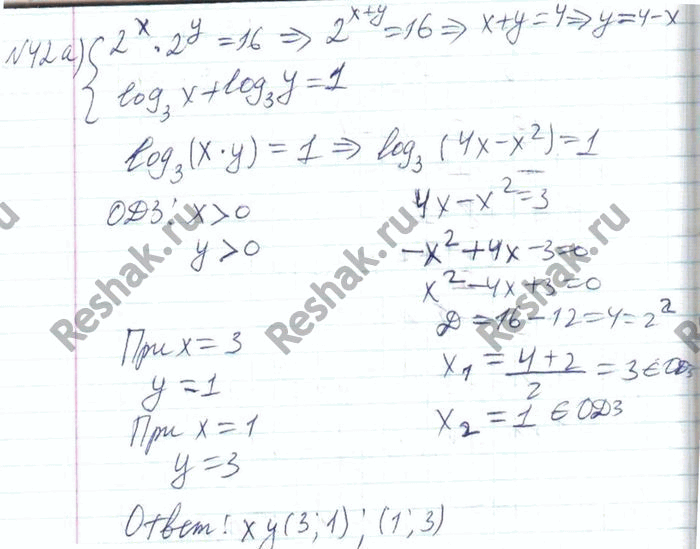 N42a) { 2^x · 2^y = 16 ⇒ 2^(x+y) = 16 ⇒ x+y = 4 ⇒ y = 4-x
log₃ x + log₃ y = 1
log₃ (x · y) = 1 ⇒ log₃ (4x - x²) = 1
ОДЗ: x > 0
y > 0
4x - x² = 3
-x² + 4x - 3 = 0
x² - 4x + 3 = 0
Д = 16 - 12 = 4 = 2²
x₁ = (4+2)/2 = 3 ∈ ОДЗ
x₂ = 1 ∈ ОДЗ
При x = 3
y = 1
При x = 1
y = 3
Ответ: xy (3; 1); (1; 3)
Reshak.ru
Reshak.ru
Reshak.ru